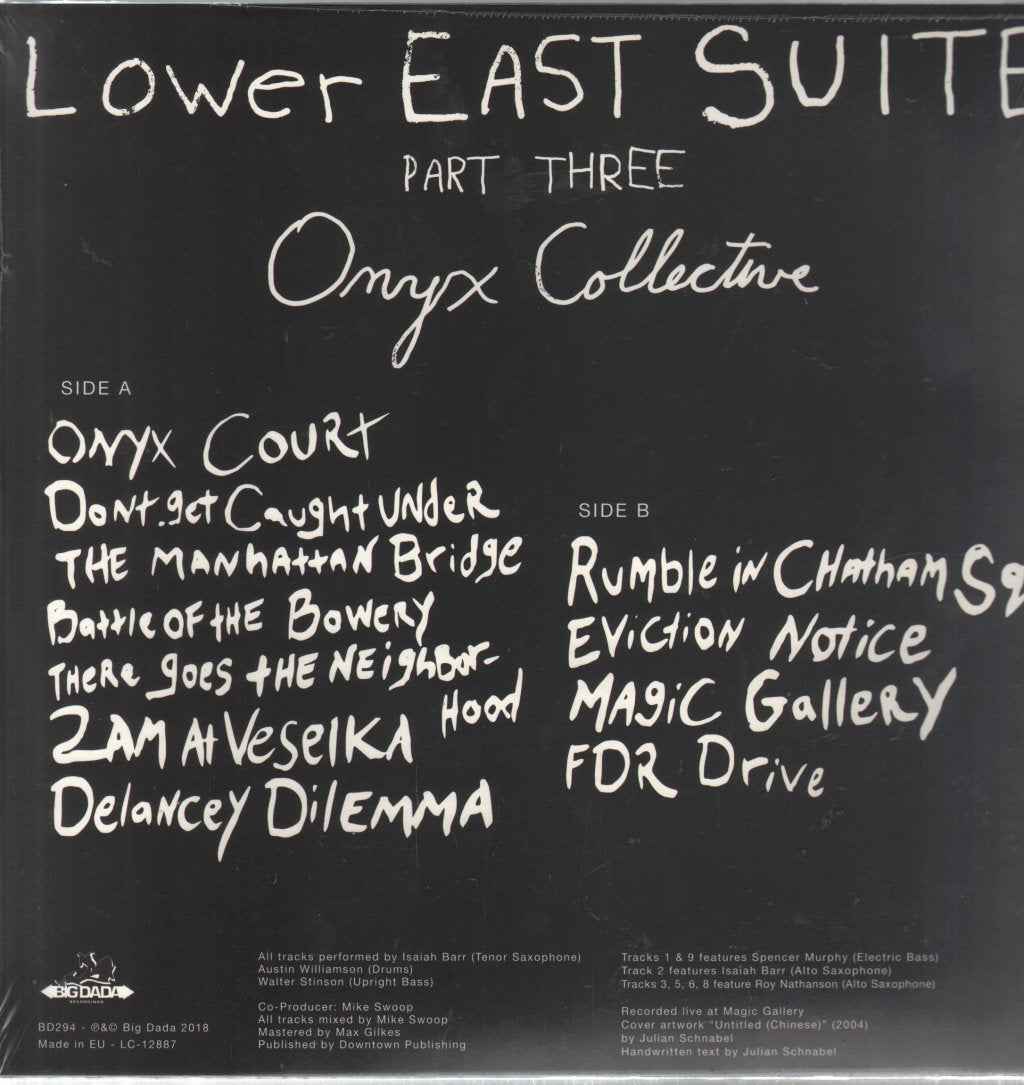 Lower EAST SUITE
PART THREE
Onyx Collective
SIDE A
ONYX COURT
DONT.get Caught UNdeR
THE MANhattAN Bridge
Battle OF tHE BoweRy
THeRe goes tHE NEighBor-
Hood
2AM At VeselKA
DelaNCey DilEMMA
SIDE B
Rumble iN CHathAM Sq
EVictiON Notice
MAgiC GalleRY
FDR Drive
BIG DADA
RECORDINGS
BD294 - ℗&© Big Dada 2018
Made in EU - LC-12887
All tracks performed by Isaiah Barr (Tenor Saxophone)
Austin Williamson (Drums)
Walter Stinson (Upright Bass)
Co-Producer: Mike Swoop
All tracks mixed by Mike Swoop
Mastered by Max Gilkes
Published by Downtown Publishing
Tracks 1 & 9 features Spencer Murphy (Electric Bass)
Track 2 features Isaiah Barr (Alto Saxophone)
Tracks 3, 5, 6, 8 feature Roy Nathanson (Alto Saxophone)
Recorded live at Magic Gallery
Cover artwork "Untitled (Chinese)" (2004)
by Julian Schnabel
Handwritten text by Julian Schnabel